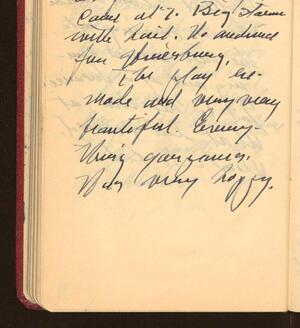 came at 7. Big storm
with hail. No audience
for
The play re-
made and very very
beautiful. Every-
thing gorgeous.
Was very happy.